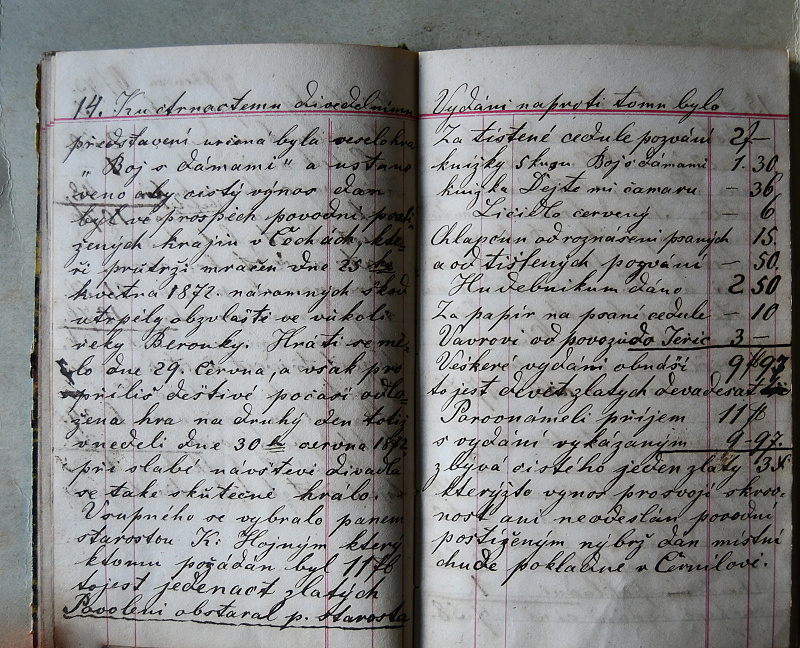 14. Ku čtrnáctemu divedelnimu
představení určená byla veselohra
„Boj s dámami" a ustano
veno aby čistý výnos dán
byl ve prospěch povodní posti
žených krajin v Čechách, kte-
ří průtrži mračen dne 25 ho
května 1872. náramných škod
utrpěly obzvláště ve vůkolí
řeky Berounky. Hráti se mě-
lo dne 29. června, a však pro
příliš deštivé počasí odlo-
žena hra na druhý den totiž
v neděli dne 30 ho června 1872
při slabé návštěvě divadla
se také skutečně hrálo.
Vstupného se vybralo panem
starostou K. Hojným který
k tomu požádán byl 11 f
to jest jedenáct zlatých
Povolení obstaral p. starosta
Vydání naproti tomu bylo
Za tištěné cedule pozvání 2 f –
knížky 5 kusů Boj s dámami 1. 30
knížka Dejte mi čamaru – 36
Líčidlo červený – 6
Chlapcům od roznášení psaných 15.
a od tištěných pozvání – 50.
Hudebníkum dáno 2 50
Za papír na psaní cedule – 10
Vávrovi od povozu do Jeřic 3 –
Veškeré vydání obnáší 9 f 97
to jest devět zlatých devadesát
Porovnámeli příjem 11 f
s vydání vykázaným 9 – 97.
zbývá čistého jeden zlatý 3 x
kterýžto výnos pro svoji skrov-
nost ani neodeslán povodní
postiženým nýbrž dán místní
chudé pokladně v Černilově.